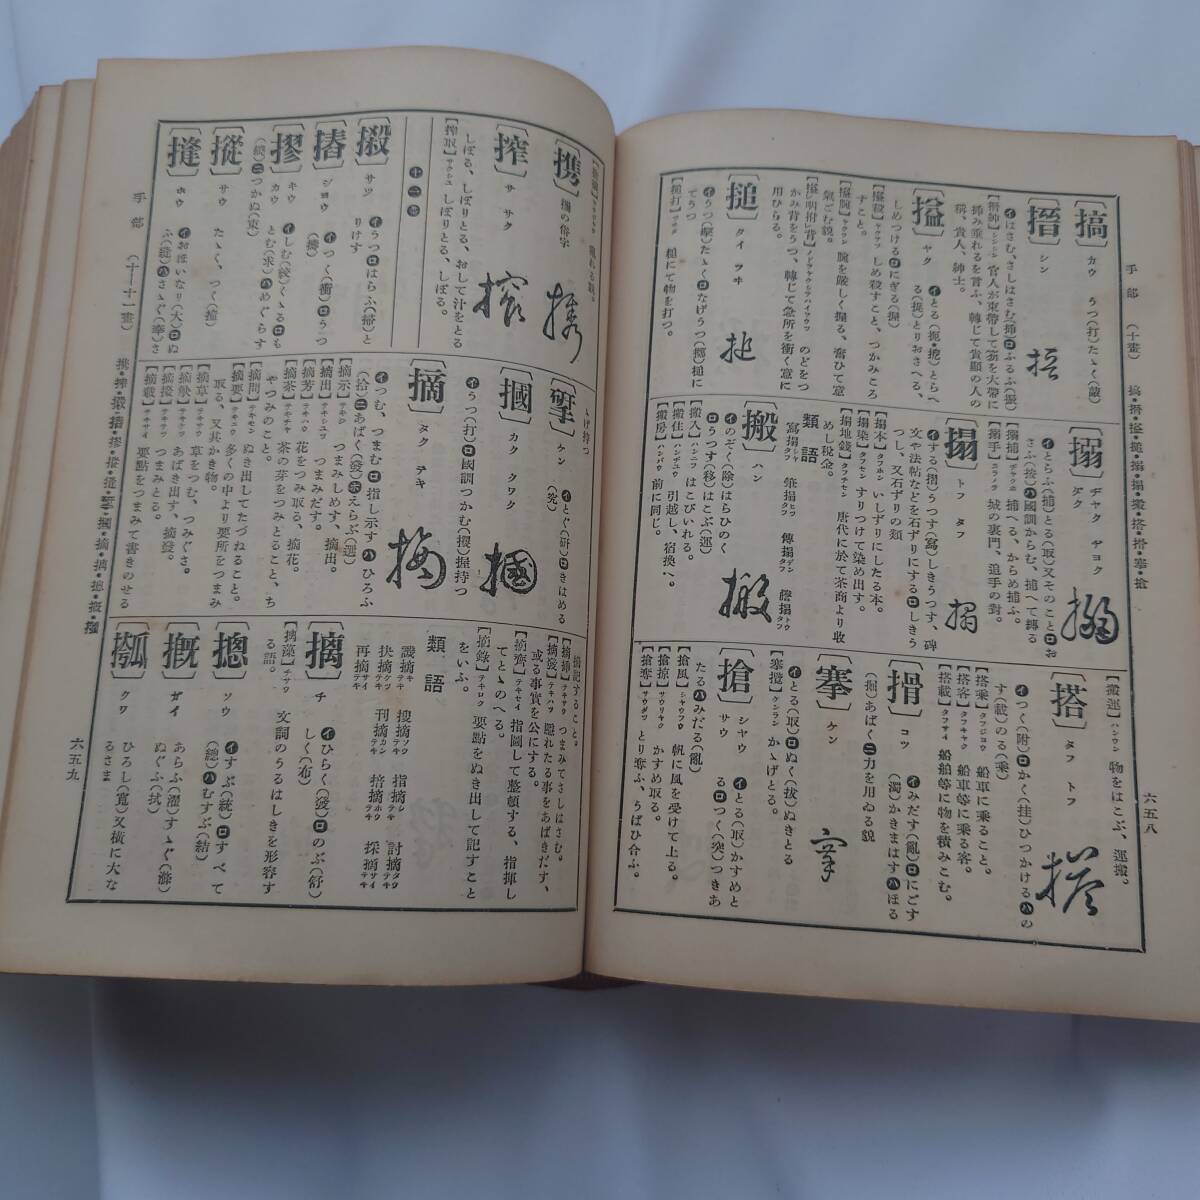 手部 (十畫) 搞・搢・搤・搥・搦・搨・搬・搭・搰・搴・搶
六五八
〔搞〕 カウ うつ(打)たゝく(敲)
〔搢〕 シン
㋑はさむ、さしはさむ(挿)㋺ふるふ(振)
【搢紳】シンシン 官人が束帶して笏を大帶に
挿み垂れるを言ふ、轉じて貴顯の人の
稱、貴人、紳士。
〔搤〕 ヤク
㋑とる(扼・挖)とらへ
る(捉)とりおさへる、
しめつける㋺にぎる(握)
【搤殺】ヤクサツ しめ殺すこと、つかみころ
すこと。
【搤腕】ヤクワン 腕を嚴しく握る、奮ひて意
氣ごむ貌。
のどをつ
かみ背をうつ、轉じて急所を衝く意に
用ひらる。
〔搥〕 タイ ツヰ
㋑うつ(擊)たゝく㋺なげうつ(擲)槌に
てうつ
【搥打】ツヰダ 槌にて物を打つ。
〔搦〕 ヂャク ヂョク ダク
㋑とらふ(捕)とる(取)又そのこと㋺お
さふ(按)㋩國訓からむ、捕へて縛る
【搦捕】ヂャクホ 捕へる、からめ捕ふ。
【搦手】カラメテ 城の裏門、追手の對。
〔搨〕 トフ タフ
㋑する(摺)うつす(寫)しきうつす、碑
文や法帖などを石ずりにする㋺しきう
つし、又石ずりの類
【搨本】タフホン いしずりにしたる本。
【搨染】タフセン すりつけて染め出す。
【搨地錢】タフチセン 唐代に於て茶商より收
めし税金。
類語
寫搨シャタフ 傳搨デンタフ
〔搬〕 ハン
㋑のぞく(除)はらひのく
㋺うつす(移)はこぶ(運)
【搬入】ハンニフ はこびいれる。
【搬住】ハンヂユウ 引越し、宿換へ。
【搬房】ハンバウ 前に同じ。
【搬運】ハンウン 物をはこぶ、運搬。
〔搭〕 タフ トフ
㋑つく(附)㋺かく(挂)ひつかける㋩の
す(載)のる(乘)
【搭乘】タフジョウ 船車に乘ること。
【搭客】タフキャク 船車等に乘る客。
【搭載】タフサイ 船舶等に物を積みこむ。
〔搰〕 コツ
㋑みだす(亂)㋺にごす
(濁)かきまはす㋩ほる
(掘)あばく㋥力を用ゐる貌
〔搴〕 ケン
㋑とる(取)㋺ぬく(拔)ぬきとる
【搴攬】ケンラン かゝげとる。
〔搶〕 シャウ サウ
㋑とる(取)かすめと
る㋺つく(突)つきあ
たる㋩みだる(亂)
【搶風】シャウフウ 帆に風を受けて上る。
【搶掠】サウリヤウ かすめ取る。
【搶奪】サウダツ とり奪ふ、うばひ合ふ。
〔携〕 攜の俗字
〔搾〕 サ サク
しぼる、しぼりとる、おして汁をとる
【搾取】サクシユ しぼりとる、しぼる。
十一畫
〔摋〕 サツ
㋑うつ㋺はらふ(掃)と
りけす
〔摏〕 ショウ
㋑つく(衝)㋺うつ
(擣)
〔摎〕 キウ カウ
㋑しむ(絞)くゝる㋺も
とむ(求)㋩めぐらす
㋥つかぬ(束)
〔摐〕 サウ たゝく、つく(撞)
〔摓〕 ホウ
㋑おほいなり(大)㋺ぬ
ふ(縫)㋩さゝぐ(奉)さ
ゝげ持つ
〔揅〕 ケン
㋑とぐ(研)㋺きはめる
(究)
〔摑〕 カク クワク
㋑うつ(打)㋺國訓つかむ(摑)握持つ
〔摘〕 タク テキ
㋑つむ、つまむ㋺指し示す㋩ひろふ
(拾)㋥あばく(發)㋭えらぶ(選)
【摘示】テキシ つまみしめす、摘出。
【摘出】テキシユツ つまみだす。
【摘芳】テキハウ 花をつみ取る、摘花。
【摘茶】テキチャ 茶の芽をつみとること、ち
やつみのこと。
【摘問】テキモン ぬき出してたづねること。
【摘要】テキエウ 多くの中より要所をつまみ
取る、又其かき物。
【摘草】テキサウ 草をつむ、つみぐさ。
【摘抉】テキケツ あばき出す、摘發。
【摘掇】テキテツ つまみとる。
【摘載】テキサイ 要點をつまみて書きのせる
摘記すること。
【摘挿】テキサウ つまみてさしはさむ。
【摘發】テキハツ 隱れたる事をあばきだす、
或る事實を公にする。
【摘齊】テキセイ 指圖して整頓する、指揮し
てとゝのへる。
【摘錄】テキロク 要點をぬき出して記すこと
をいふ。
類語
識摘 搜摘 指摘 討摘
抉摘 刊摘 掊摘 採摘
再摘
〔摛〕 チ
㋑ひらく(發)㋺のぶ(舒)
しく(布)
【摛藻】チサウ 文詞のうるはしきを形容す
る語。
〔摠〕 ソウ
㋑すぶ(統)㋺すべて
(總)㋩むすぶ(結)
〔摡〕 ガイ
あらふ(濯)すゝぐ(滌)
ぬぐふ(拭)
〔摦〕 クワ
ひろし(寬)又橫に大な
るさま
手部 (十―十一畫)
六五九